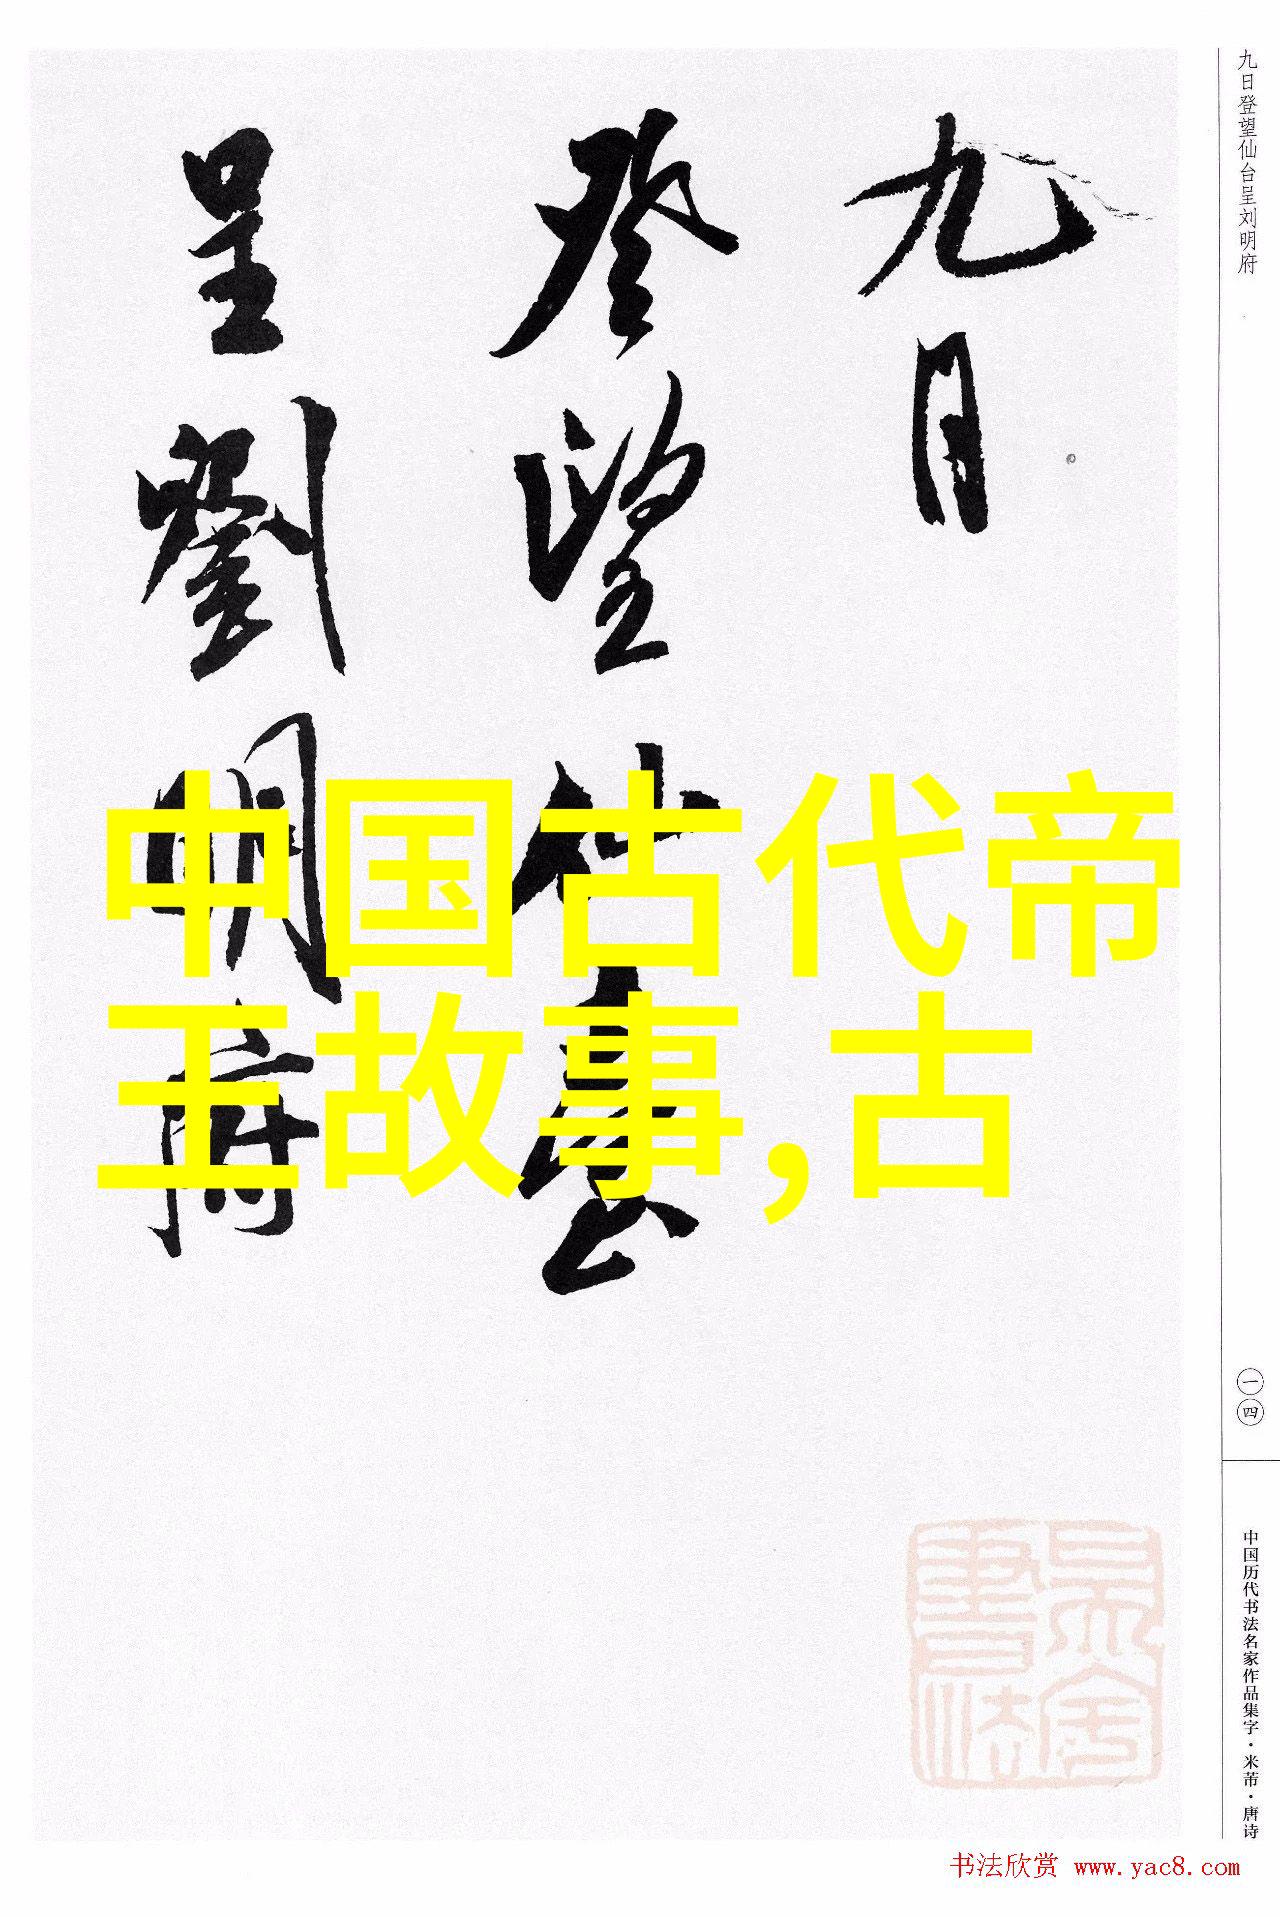 九日
登望仙臺
呈劉明府
中国古代帝
王故事,古
九日登望仙台呈刘明府
一四
中国历代书法名家作品集字·米芾·唐诗
书法欣赏 www.yac8.com